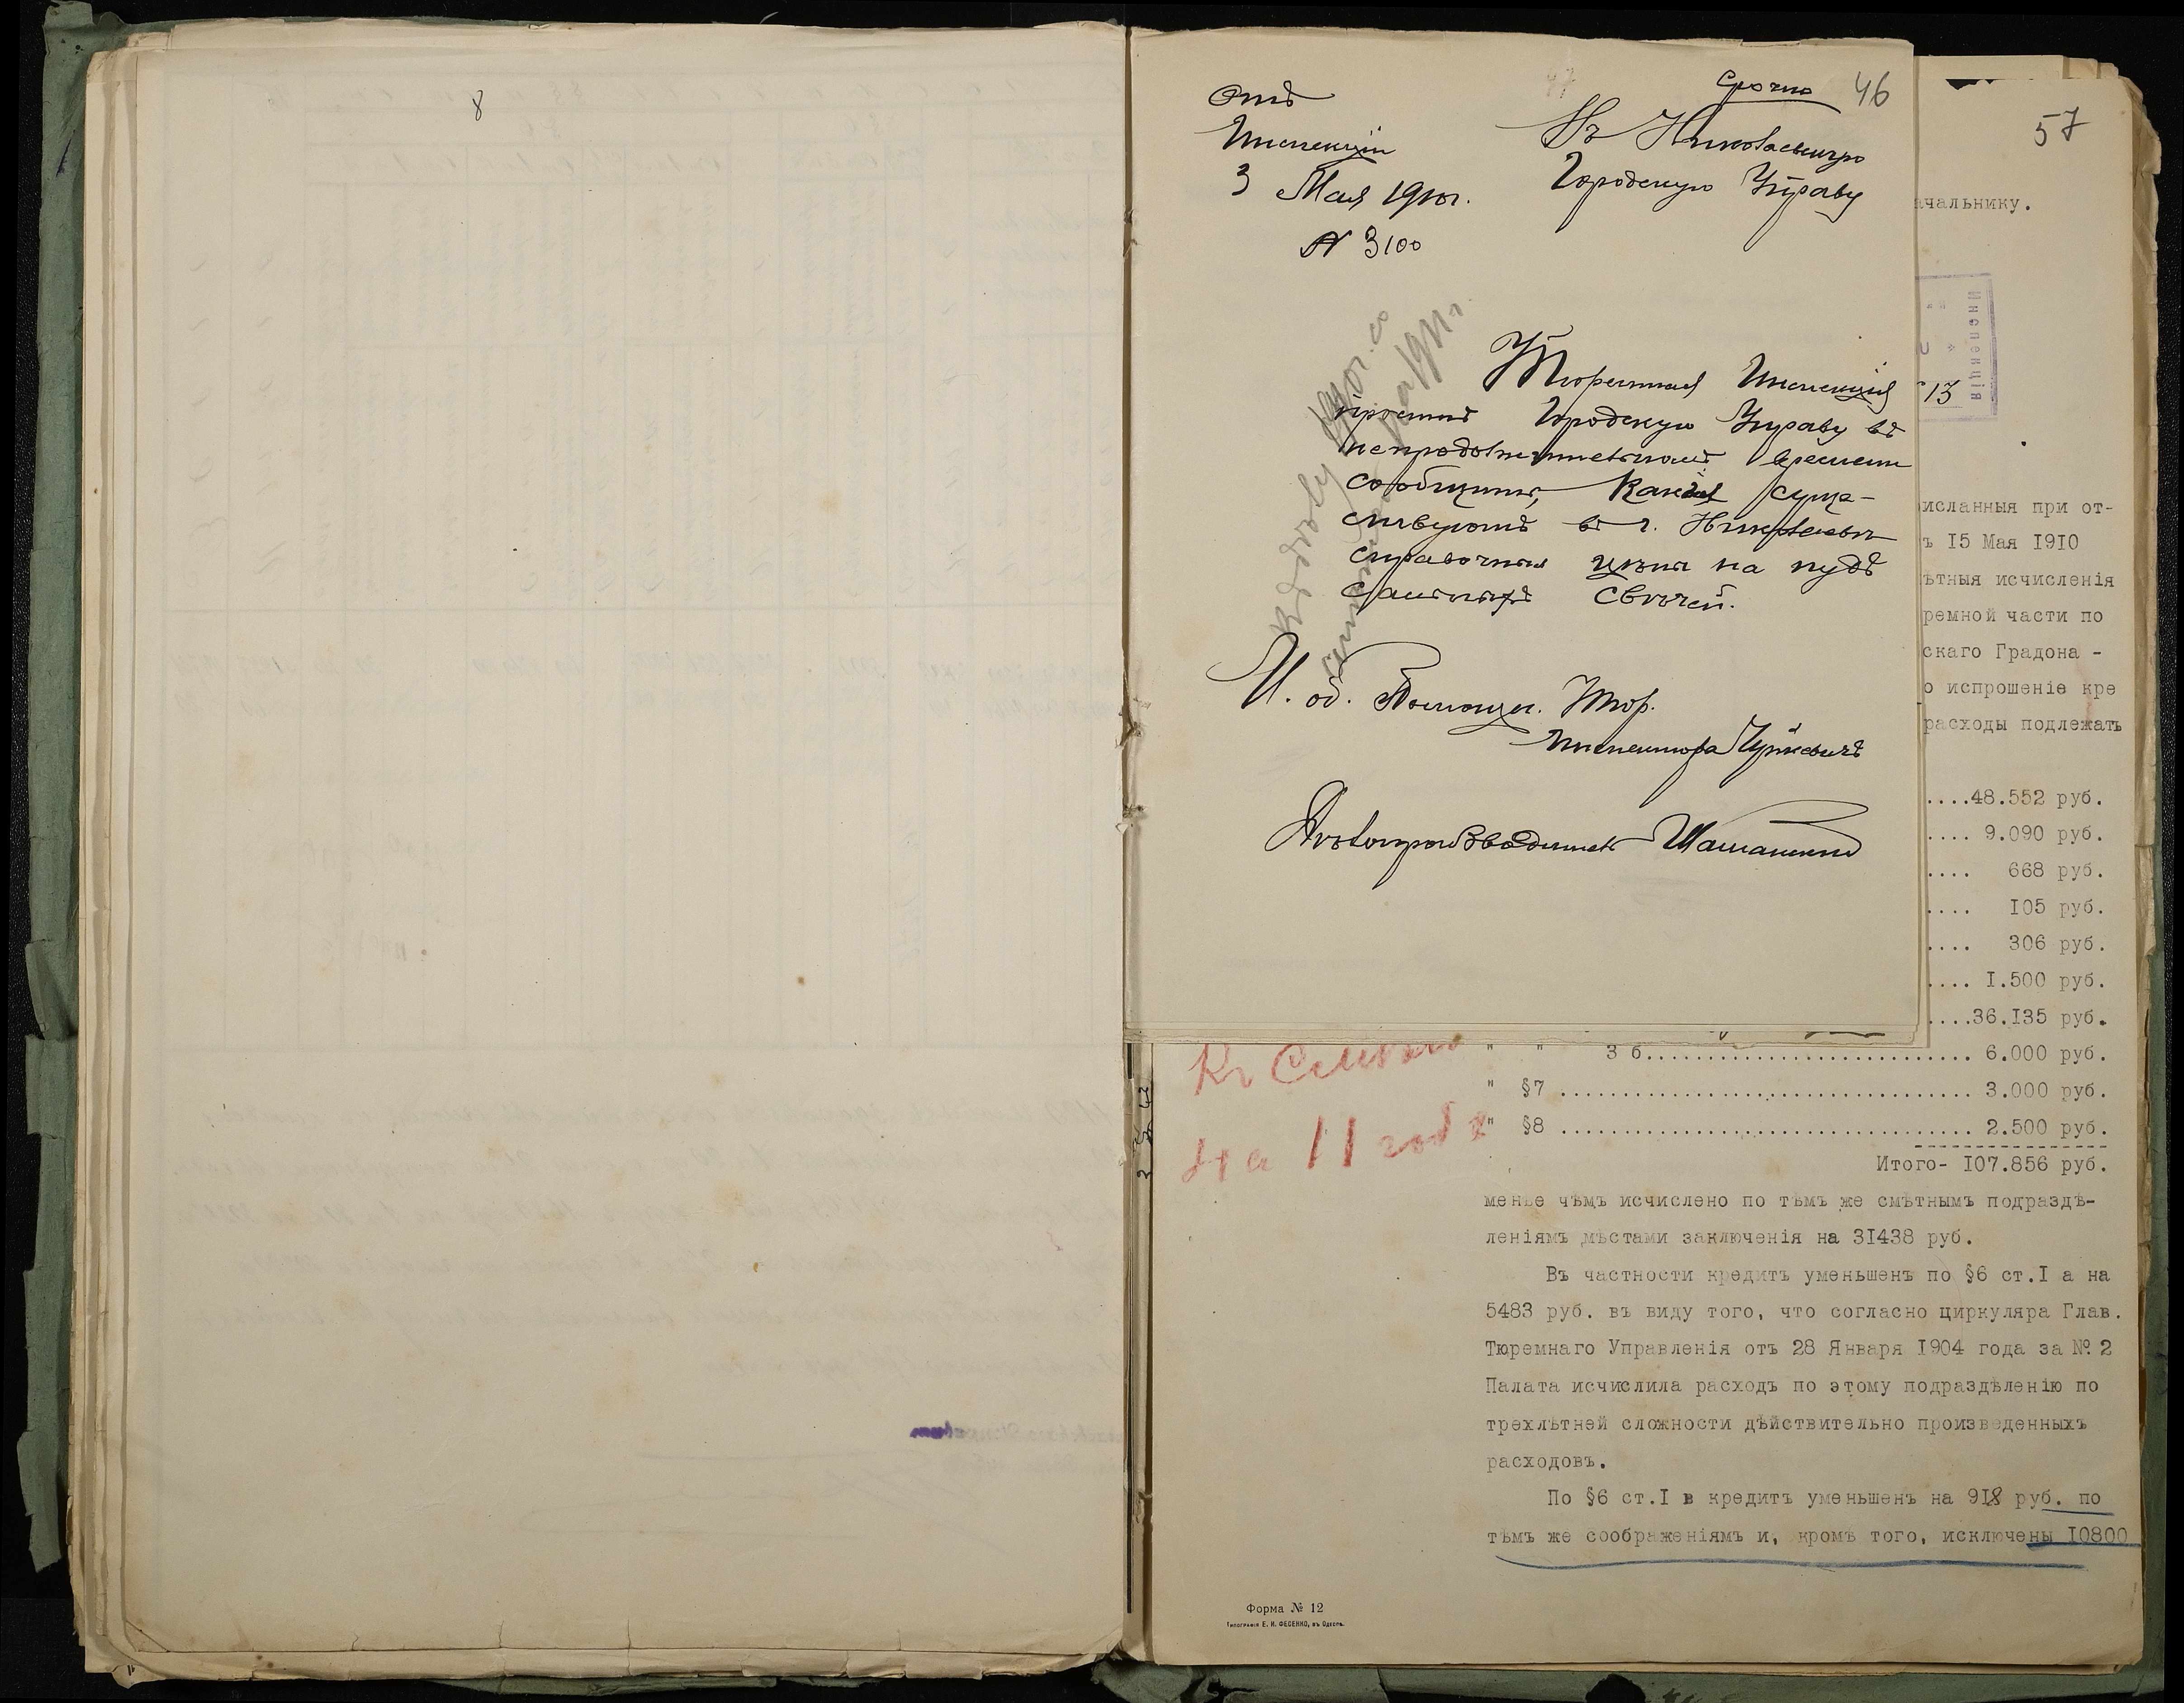 8
Срочно 46
Отд
Инспекціи
3 Мая 1910г.
N 3100
Въ Николаевскую
Городскую Управу
Тюремная Инспекція
проситъ Городскую Управу въ
непродолжительномъ времени
сообщить, какія суще-
ствуютъ въ г. Николаевѣ
справочныя цѣны на пудъ
сальныхъ свѣчей.
И. об. Помощн. Тюр.
Инспектора
Дѣлопроизводитель
Къ дѣлу
57
ачальнику.
Инспекціи
13
исланныя при от-
ъ 15 Мая 1910
ѣтныя исчисленія
ремной части по
скаго Градона -
о испрошеніе кре
расходы подлежать
....48.552 руб.
.... 9.090 руб.
.... 668 руб.
.... 105 руб.
.... 306 руб.
.... 1.500 руб.
....36.135 руб.
" " 3 б.......................... 6.000 руб.
" §7 ................................. 3.000 руб.
" §8 ................................. 2.500 руб.
Итого- 107.856 руб.
Къ Смѣтѣ
на 11 годъ
менѣе чѣмъ исчислено по тѣмъ же смѣтнымъ подраздѣ-
леніямъ мѣстами заключенія на 31438 руб.
Въ частности кредитъ уменьшенъ по §6 ст.I а на
5483 руб. въ виду того, что согласно циркуляра Глав.
Тюремнаго Управленія отъ 28 Января 1904 года за № 2
Палата исчислила расходъ по этому подраздѣленію по
трехлѣтней сложности дѣйствительно произведенныхъ
расходовъ.
По §6 ст.I в кредитъ уменьшенъ на 918 руб. по
тѣмъ же соображеніямъ и, кромѣ того, исключены 10800
Форма № 12
Типографія Е. И. ФЕСЕНКО, въ Одессѣ.